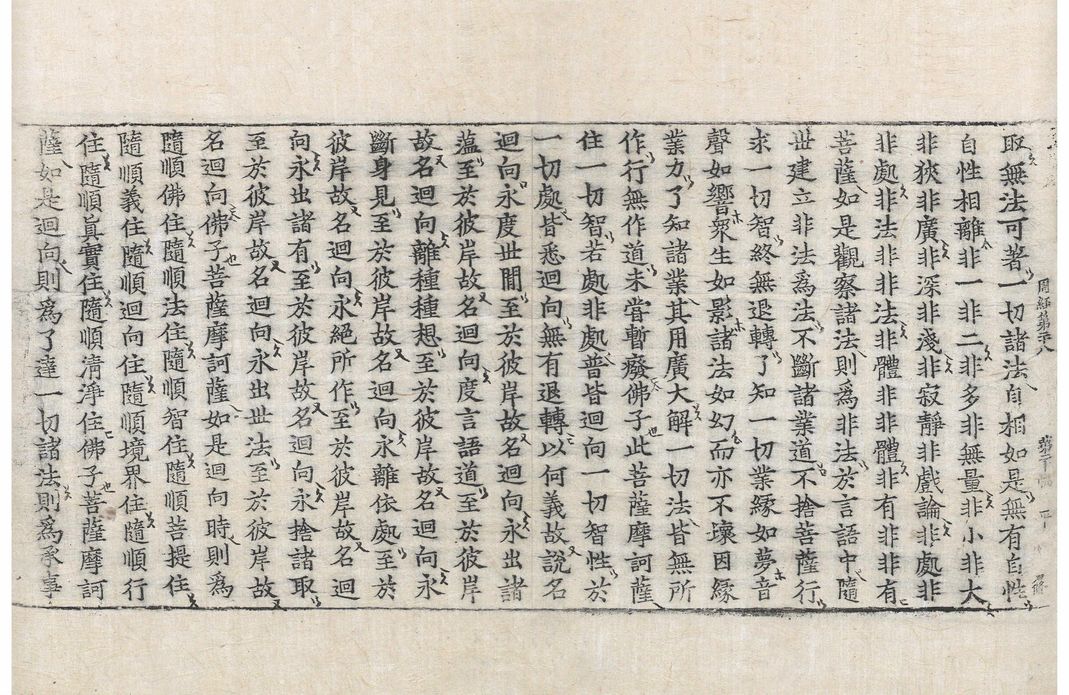 取無法可著一切諸法自相如是無有自性
自性相離非一非二非多非無量非小非大
非狹非廣非深非淺非寂靜非戲論非處非
非處非法非非法非體非非體非有非非有
菩薩如是觀察諸法則爲非法於言語中隨
世建立非法爲法不斷諸業道不捨菩薩行
求一切智終無退轉了知一切業緣如夢音
聲如響衆生如影諸法如幻而亦不壞因緣
業力了知諸業其用廣大解一切法皆無所
作行無作道未嘗暫癈佛子此菩薩摩訶薩
住一切智若處非處普皆迴向一切智性於
一切處皆悉迴向無有退轉以何義故說名
迴向永度世閒至於彼岸故名迴向永出諸
蘊至於彼岸故名迴向度言語道至於彼岸
故名迴向離種種想至於彼岸故名迴向永
斷身見至於彼岸故名迴向永離依處至於
彼岸故名迴向永絕所作至於彼岸故名迴
向永出諸有至於彼岸故名迴向永捨諸取
至於彼岸故名迴向永出世法至於彼岸故
名迴向佛子菩薩摩訶薩如是迴向時則爲
隨順佛住隨順法住隨順智住隨順菩提住
隨順義住隨順迴向住隨順境界住隨順行
住隨順眞實住隨順淸淨住佛子菩薩摩訶
薩如是迴向則爲了達一切諸法則爲承事